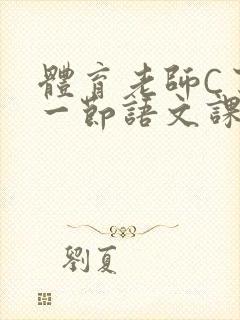 體育老師C了
一節語文課
劉夏